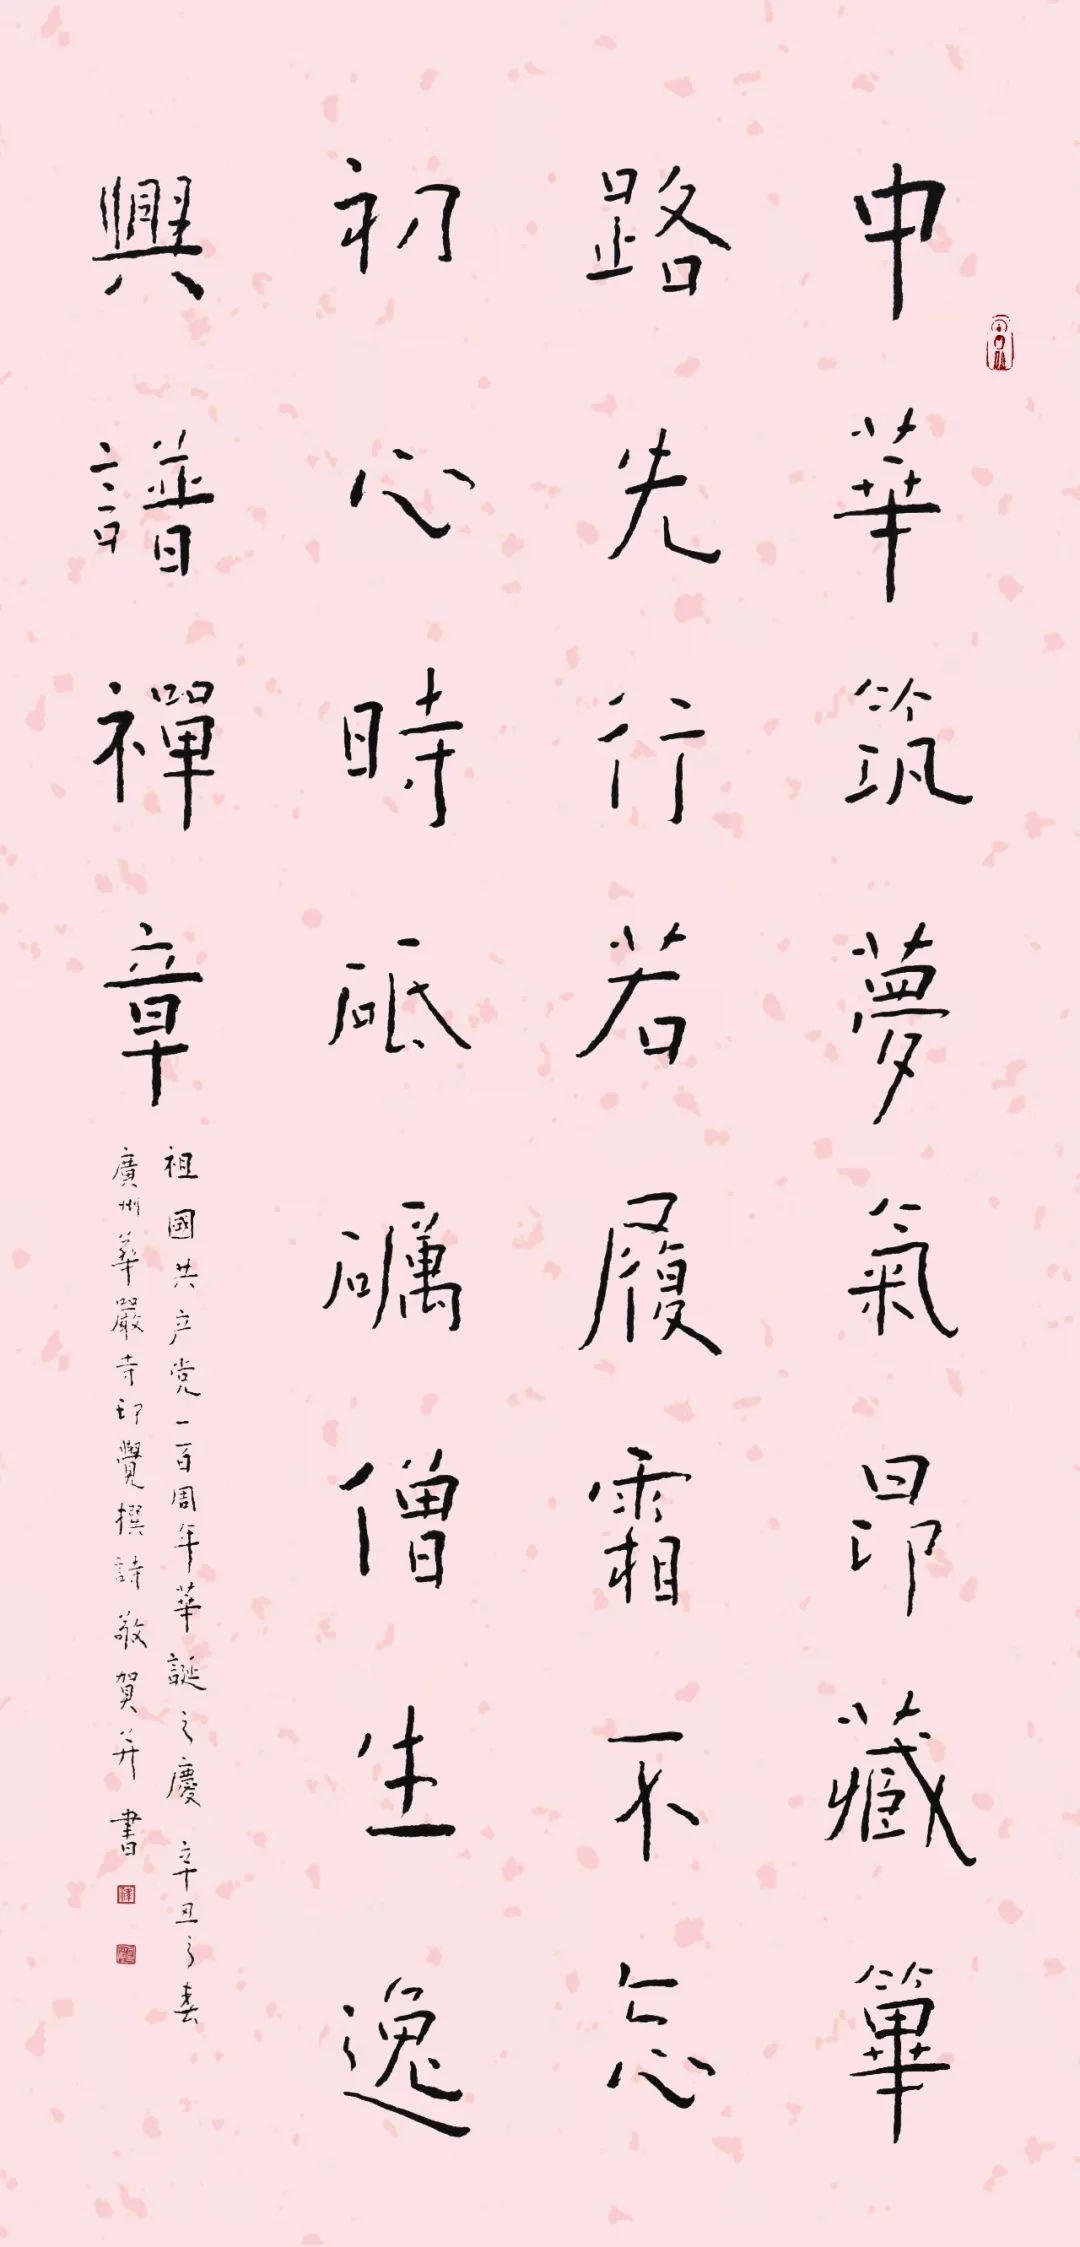 中華筑夢氣昂藏篳
路先行若履霜不忘
初心時砥礪僧生逸
興譜禪章
祖國共产党一百周年華誕之慶 辛丑之春
廣州華嚴寺印覺撰詩敬賀并書